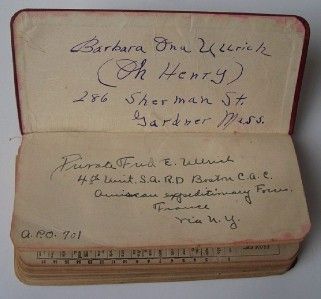 Barbara Ona Ullrich
(Oh Henry)
286 Sherman St.
Gardner Mass.
Private Fred E. Ullrich
4th Unit. S.A.R.D Boston C.A.C.
American expeditionary Force.
France
via N.Y.
A.P.O. 701